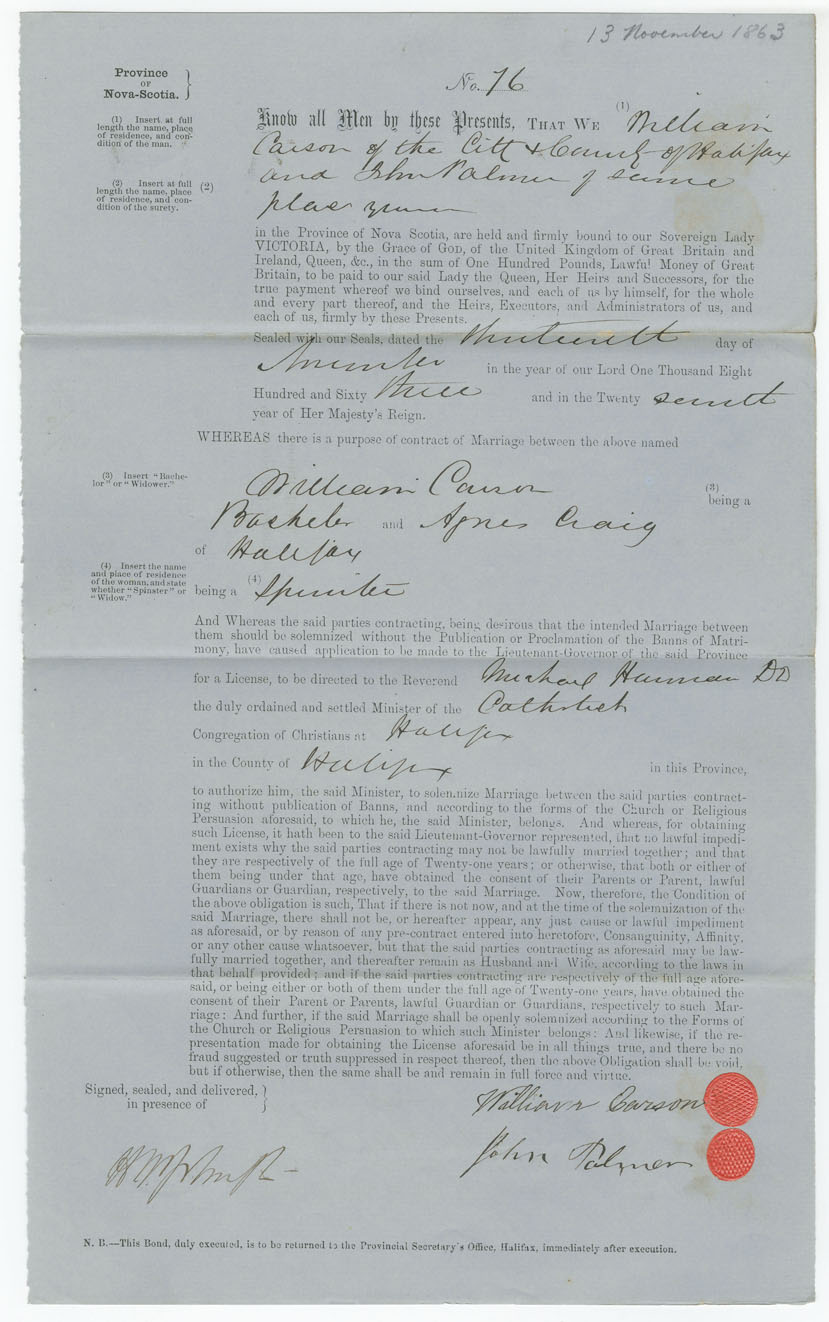 13 November 1863
Province
OF
Nova-Scotia.
No. 76
(1) Insert at full
length the name, place
of residence, and con-
dition of the man.
Know all Men by these Presents, THAT WE (1) William
Carson of the Citt & County of Halifax
(2) Insert at full
length the name, place
of residence, and con-
dition of the surety.
(2) and John Palmer of same
place
in the Province of Nova Scotia, are held and firmly bound to our Sovereign Lady
VICTORIA, by the Grace of GOD, of the United Kingdom of Great Britain and
Ireland, Queen, &c., in the sum of One Hundred Pounds, Lawful Money of Great
Britain, to be paid to our said Lady the Queen, Her Heirs and Successors, for the
true payment whereof we bind ourselves, and each of us by himself, for the whole
and every part thereof, and the Heirs, Executors, and Administrators of us, and
each of us, firmly by these Presents.
Sealed with our Seals, dated the thirteenth day of
November in the year of our Lord One Thousand Eight
Hundred and Sixty three and in the Twenty seventh
year of Her Majesty's Reign.
WHEREAS there is a purpose of contract of Marriage between the above named
(3) Insert "Bache-
lor" or "Widower."
William Carson (3) being a
Bachelor and Agnes Craig
of Halifax
(4) Insert the name
and place of residence
of the woman, and state
whether "Spinster" or
"Widow."
being a (4) Spinster
And Whereas the said parties contracting, being desirous that the intended Marriage between
them should be solemnized without the Publication or Proclamation of the Banns of Matri-
mony, have caused application to be made to the Lieutenant-Governor of the said Province
for a License, to be directed to the Reverend Michael Hannan DD
the duly ordained and settled Minister of the Catholick
Congregation of Christians at Halifax
in the County of Halifax in this Province,
to authorize him, the said Minister, to solemnize Marriage between the said parties contract-
ing without publication of Banns, and according to the forms of the Church or Religious
Persuasion aforesaid, to which he, the said Minister, belongs. And whereas, for obtaining
such License, it hath been to the said Lieutenant-Governor represented, that no lawful impedi-
ment exists why the said parties contracting may not be lawfully married together; and that
they are respectively of the full age of Twenty-one years; or otherwise, that both or either of
them being under that age, have obtained the consent of their Parents or Parent, lawful
Guardians or Guardian, respectively, to the said Marriage. Now, therefore, the Condition of
the above obligation is such, That if there is not now, and at the time of the solemnization of the
said Marriage, there shall not be, or hereafter appear, any just cause or lawful impediment
as aforesaid, or by reason of any pre-contract entered into heretofore, Consanguinity, Affinity,
or any other cause whatsoever, but that the said parties contracting as aforesaid may be law-
fully married together, and thereafter remain as Husband and Wife, according to the laws in
that behalf provided; and if the said parties contracting are respectively of the full age afore-
said, or being either or both of them under the full age of Twenty-one years, have obtained the
consent of their Parent or Parents, lawful Guardian or Guardians, respectively to such Mar-
riage: And further, if the said Marriage shall be openly solemnized according to the Forms of
the Church or Religious Persuasion to which such Minister belongs: And likewise, if the re-
presentation made for obtaining the License aforesaid be in all things true, and there be no
fraud suggested or truth suppressed in respect thereof, then the above Obligation shall be void,
but if otherwise, then the same shall be and remain in full force and virtue.
Signed, sealed, and delivered,
in presence of
William Carson
John Palmer
N. B.—This Bond, duly executed, is to be returned to the Provincial Secretary's Office, Halifax, immediately after execution.